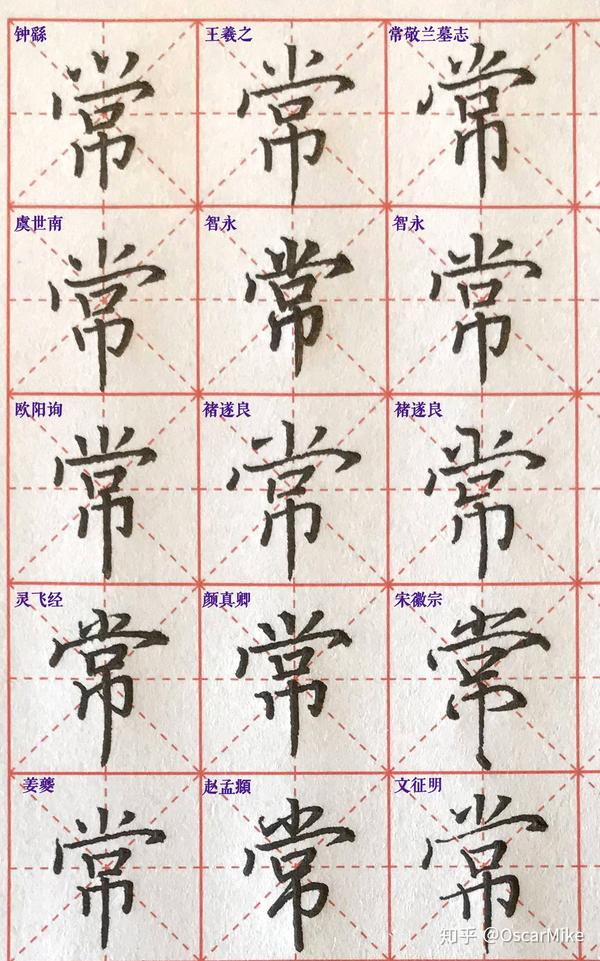 钟繇 王羲之 常敬兰墓志
常 常 常
虞世南 智永 智永
常 常 常
欧阳询 褚遂良 褚遂良
常 常 常
灵飞经 颜真卿 宋徽宗
常 常 常
姜夔 赵孟頫 文征明
常 常 常
知乎 @OscarMike